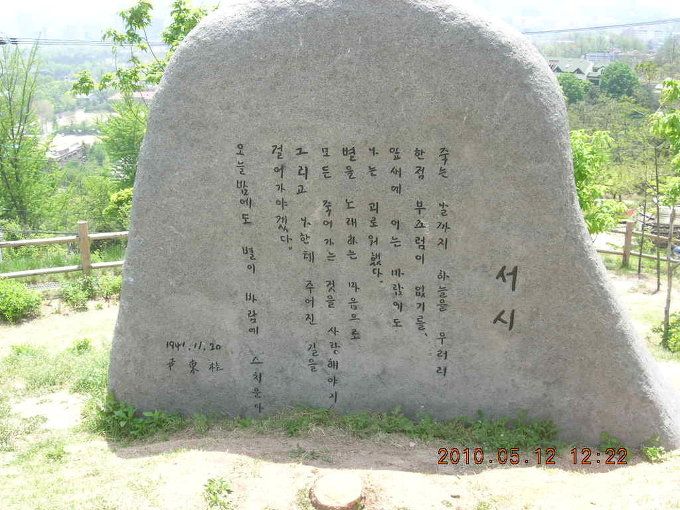 서시
죽는 날까지 하늘을 우러러
한점 부끄럼이 없기를,
잎새에 이는 바람에도
나는 괴로워했다.
별을 노래하는 마음으로
모든 죽어가는 것을 사랑해야지
그리고 나한테 주어진 길을
걸어가야겠다.
오늘밤에도 별이 바람에 스치운다
1941.11.20
尹東柱
2010.05.12 12:22